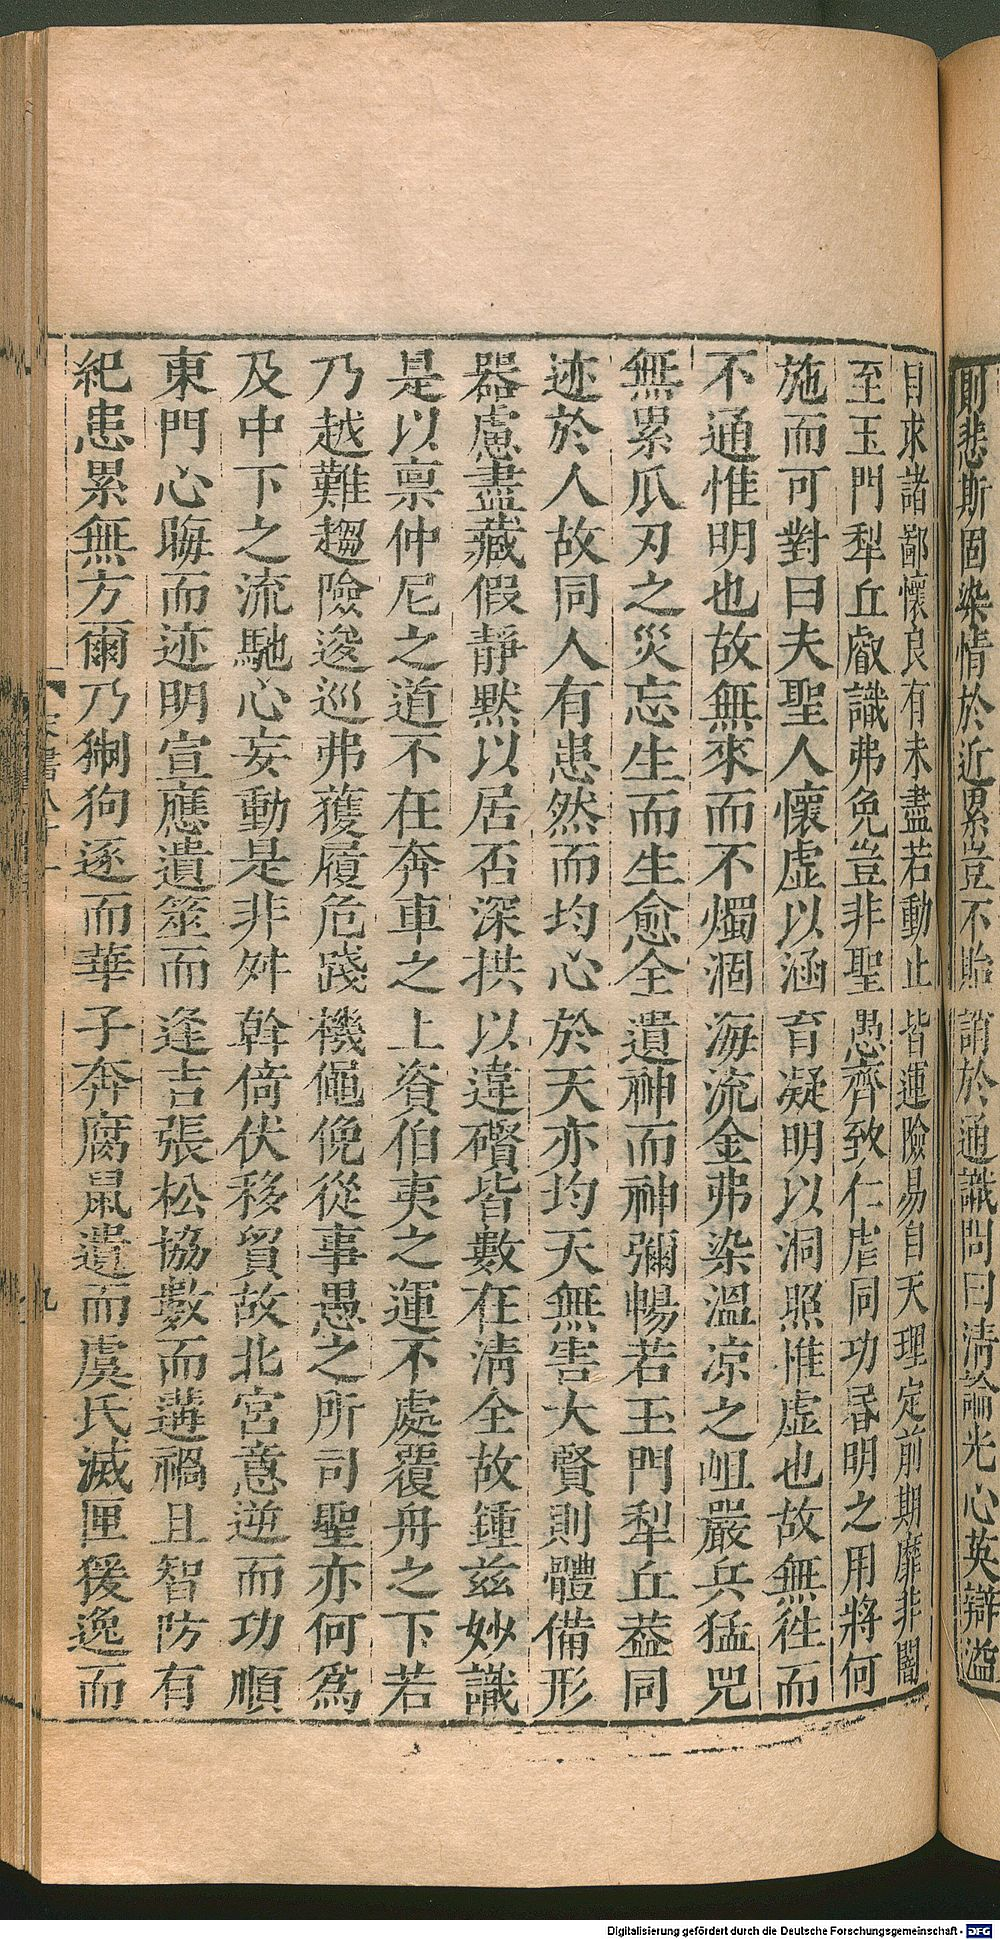 則悲斯固染情於近累豈不貽誚於通識問曰淸論光心英辯溢
目求諸鄙懷良有未盡若動止皆運險易自天理定前期靡非闇
至玉門犁丘叡識弗免豈非聖愚齊致仁虐同功昏明之用將何
施而可對曰夫聖人懷虛以涵育凝明以洞照惟虛也故無徃而
不通惟明也故無來而不燭涸海流金弗染溫凉之岨嚴兵猛兕
無累爪刃之災忘生而生愈全遺神而神彌暢若玉門犁丘葢同
迹於人故同人有患然而均心於天亦均天無害大賢則體備形
器慮盡藏假靜默以居否深拱以違礥皆數在淸全故鍾兹妙識
是以禀仲尼之道不在奔車之上資伯夷之運不處覆舟之下若
乃越難趨險逡巡弗獲履危踐機僶俛從事愚之所司聖亦何爲
及中下之流馳心妄動是非舛幹倚伏移貿故北宮意逆而功順
東門心晦而迹明宣應遺筮而逢吉張松協數而遘禍且智防有
紀患累無方爾乃猘狗逐而華子奔腐鼠遺而虞氏滅匣猨逸而
宋書八十一
九
Digitalisierung gefördert durch die Deutsche Forschungsgemeinschaft - DFG